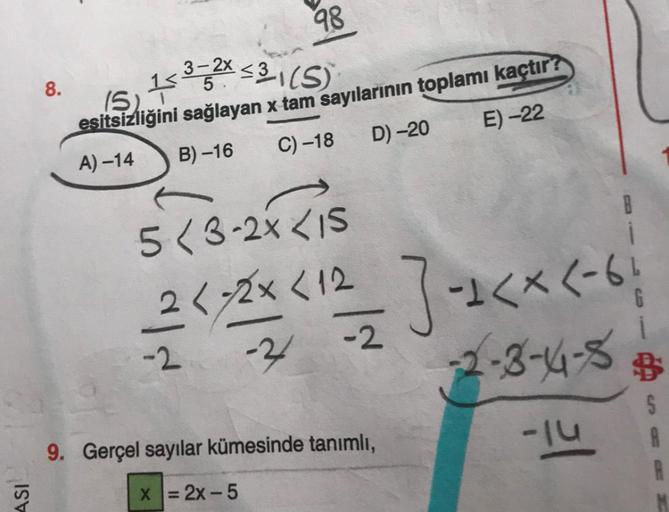 98
8. 1 < 3 - 2x / 5 ≤ 3
(5) 1 1 (5)
eşitsizliğini sağlayan x tam sayılarının toplamı kaçtır?
A) -14 B) -16 C) -18 D) -20 E) -22
5 < 3-2x < 15
2 < -2x < 12 ] -1 < x < -6
-2 -2 -2
-2 -3 -4 -5
-14
9. Gerçel sayılar kümesinde tanımlı,
x = 2x - 5
ASI
BİLGİ
SARM